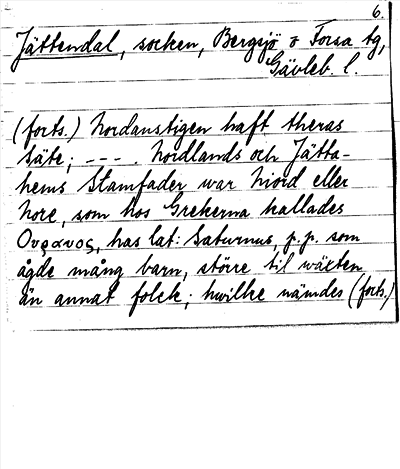 6.
Jättendal, socken, Bergsjö o Forsa tg,
Gävleb. l.
(forts.) Nordanstigen haft theras
säte; --- . Nordlands och Jätta-
hems Stamfader war Niord eller
Nore, som hos Grekerna kallades
Ουρανος, has lat: Saturnus, p.p. som
ågde mång barn, större til wäxten
än annat folck; hwilke nämdes (forts.)